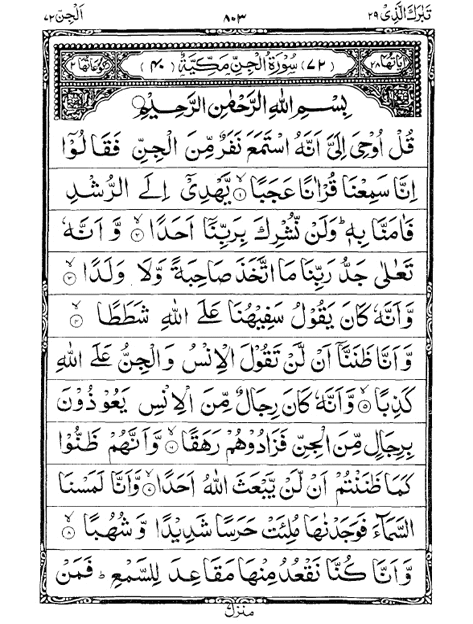 تَبٰرَكَ الَّذِىْ ٢٩ ٨٠٣ اَلْجِنّ ٧٢
اٰيَاتُهَا ٢٨ (٧٢) سُوْرَةُ الْجِنِّ مَكِّيَّةٌ (٤٠) رُكُوْعَاتُهَا ٢
بِسْمِ اللهِ الرَّحْمٰنِ الرَّحِيْمِ
قُلْ اُوْحِىَ اِلَىَّ اَنَّهُ اسْتَمَعَ نَفَرٌ مِّنَ الْجِنِّ فَقَالُوْٓا
اِنَّا سَمِعْنَا قُرْاٰنًا عَجَبًا ۙ‏﴿١﴾ يَّهْدِىْٓ اِلَى الرُّشْدِ
فَاٰمَنَّا بِهٖ ؕ وَلَنْ نُّشْرِكَ بِرَبِّنَآ اَحَدًا ۙ‏﴿٢﴾ وَّ اَنَّهٗ
تَعٰلٰى جَدُّ رَبِّنَا مَا اتَّخَذَ صَاحِبَةً وَّلَا وَلَدًا ۙ‏﴿٣﴾
وَّاَنَّهٗ كَانَ يَقُوْلُ سَفِيْهُنَا عَلَى اللهِ شَطَطًا ۙ‏﴿٤﴾
وَّاَنَّا ظَنَنَّآ اَنْ لَّنْ تَقُوْلَ الْاِنْسُ وَ الْجِنُّ عَلَى اللهِ
كَذِبًا ۙ‏﴿٥﴾ وَّاَنَّهٗ كَانَ رِجَالٌ مِّنَ الْاِنْسِ يَعُوْذُوْنَ
بِرِجَالٍ مِّنَ الْجِنِّ فَزَادُوْهُمْ رَهَقًا ۙ‏﴿٦﴾ وَّاَنَّهُمْ ظَنُّوْا
كَمَا ظَنَنْتُمْ اَنْ لَّنْ يَّبْعَثَ اللهُ اَحَدًا ۙ‏﴿٧﴾ وَّاَنَّا لَمَسْنَا
السَّمَآءَ فَوَجَدْنٰهَا مُلِئَتْ حَرَسًا شَدِيْدًا وَّ شُهُبًا ۙ‏﴿٨﴾
وَّ اَنَّا كُنَّا نَقْعُدُ مِنْهَا مَقَاعِدَ لِلسَّمْعِ ؕ فَمَنْ
منزل